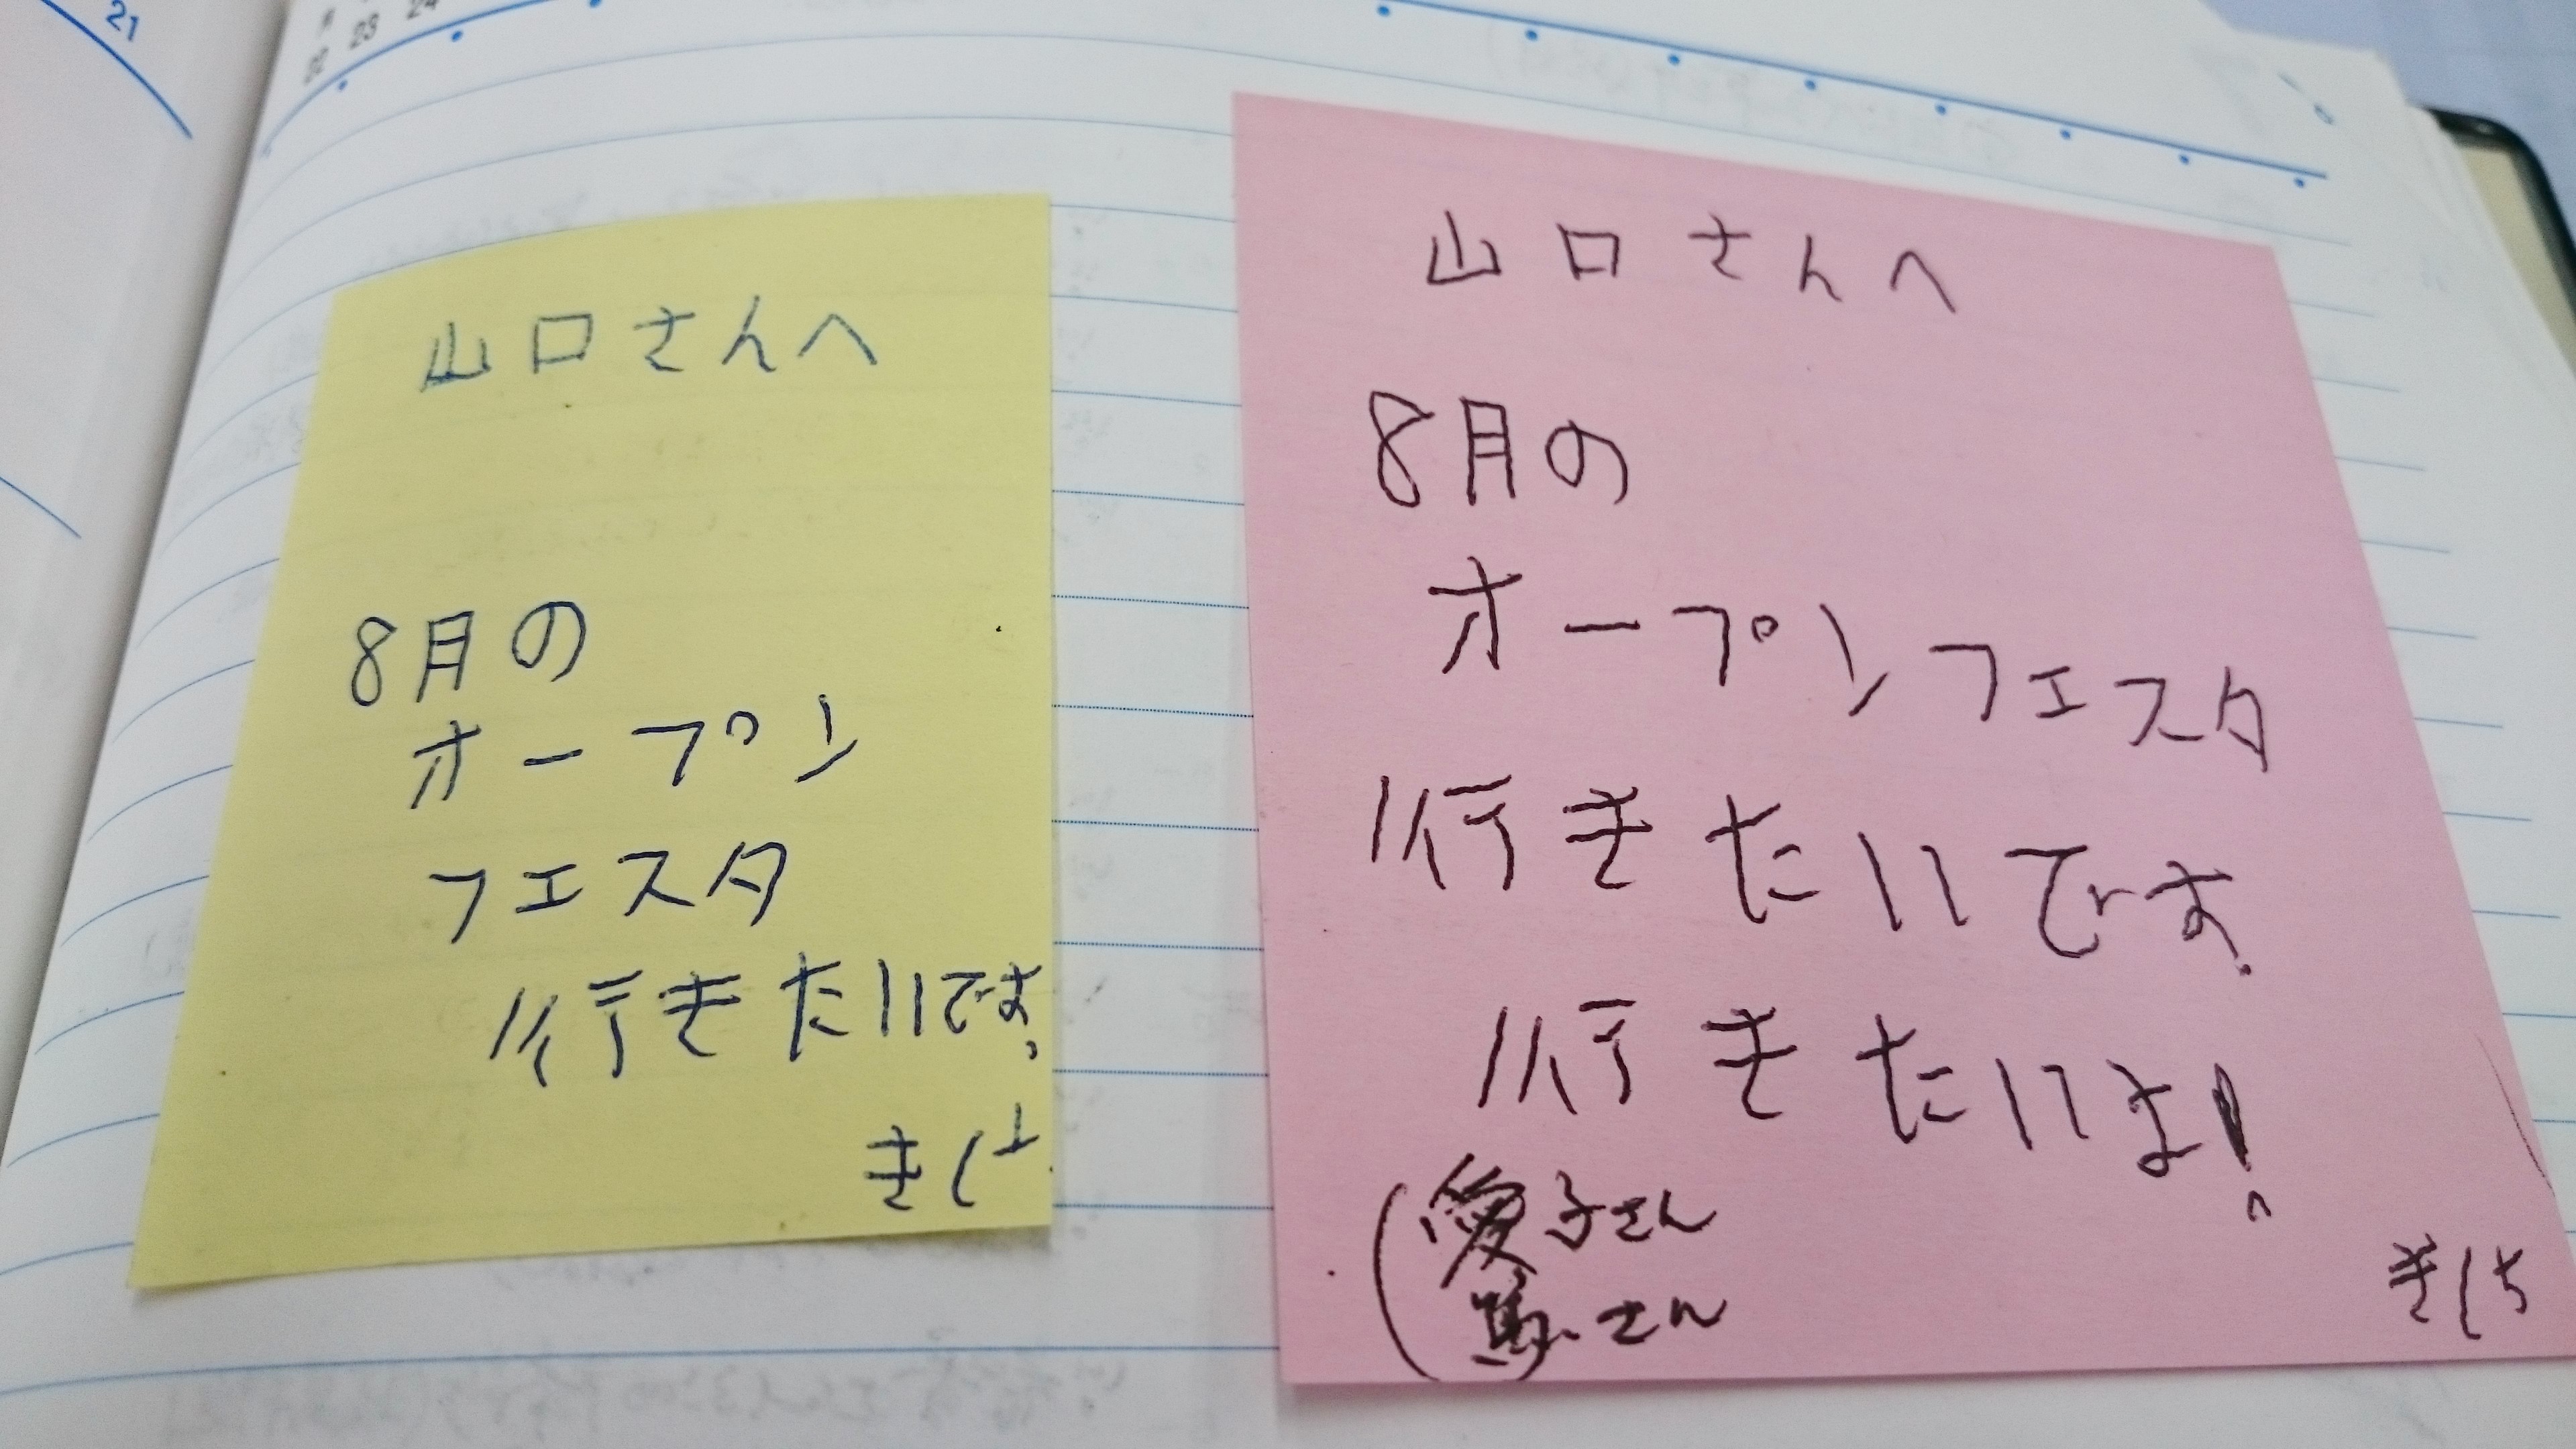 21
22 23 24
山口さんへ
8月の
オープン
フェスタ
行きたいです。
きし
山口さんへ
8月の
オープンフェスタ
行きたいです。
行きたいよ!
(愛子さん
篤さん
きしち